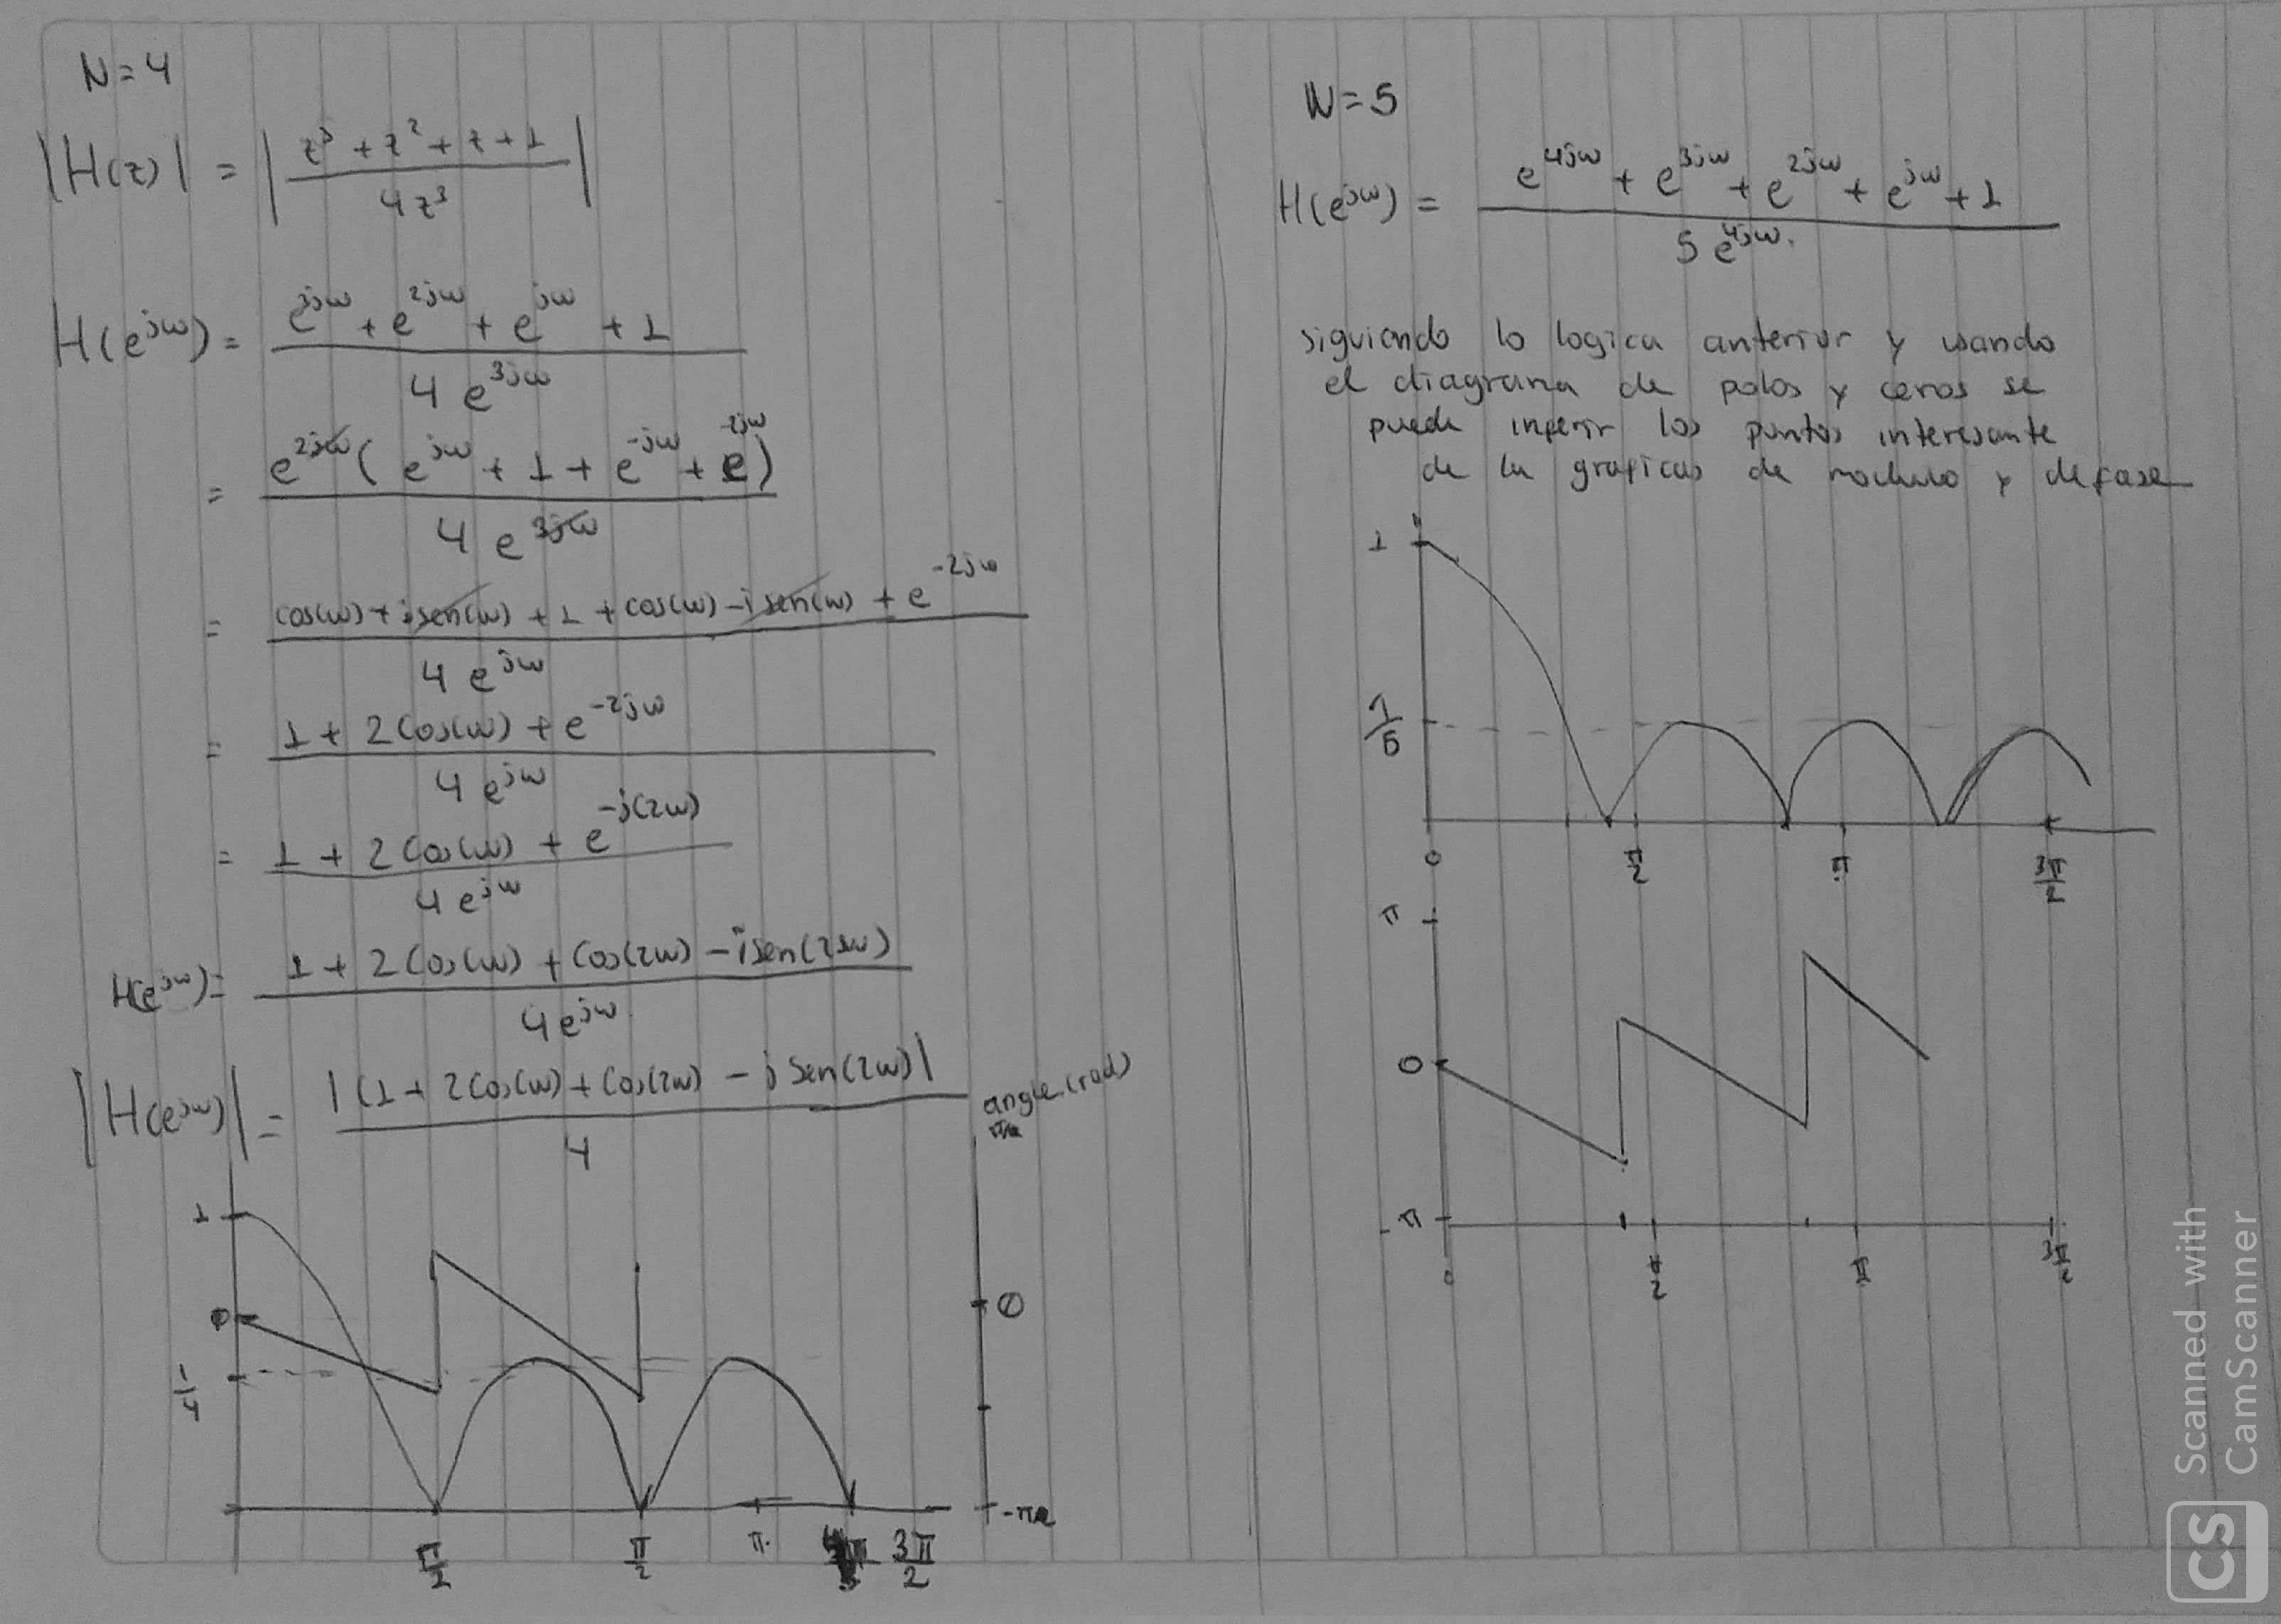 N=4
|H(z)| = | z³ + z² + z + 1 / 4z³ |
H(e^jω) = e^3jω + e^2jω + e^jω + 1 / 4 e^3jω
= e^2jω ( e^jω + 1 + e^-jω + e^-2jω ) / 4 e^3jω
= cos(ω) + j sen(ω) + 1 + cos(ω) - i sen(ω) + e^-2jω / 4 e^jω
= 1 + 2 Cos(ω) + e^-2jω / 4 e^jω
= 1 + 2 Cos(ω) + e^-j(2ω) / 4 e^jω
H(e^jω) = 1 + 2 Cos(ω) + Cos(2ω) - i sen(2ω) / 4 e^jω
|H(e^jω)| = |(1 + 2 Cos(ω) + Cos(2ω) - j Sen(2ω)| / 4
angle (rad)
1
0
1/4
π/2
π/2
π
3π/2
0
N=5
H(e^jω) = e^4jω + e^3jω + e^2jω + e^jω + 1 / 5 e^4jω
siguiendo lo logica anterior y usando
el diagrama de polos y ceros se
puede inferir los puntos interesante
de la graficas de modulo y de fase
1
1/5
0
π/2
π
3π/2
π
0
-π
0
π/2
π
3π/2
CS Scanned with
CamScanner